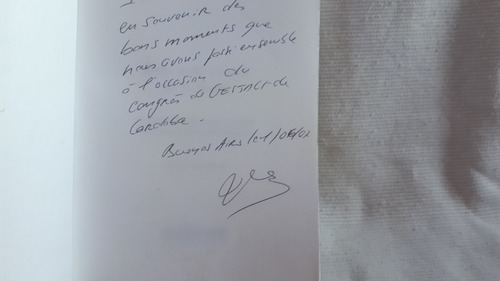 en souvenir des
bons moments que
nous avons passé ensemble
à l'occasion du
congrès de GESTALT de
Cordoba.
Buenos Aires le